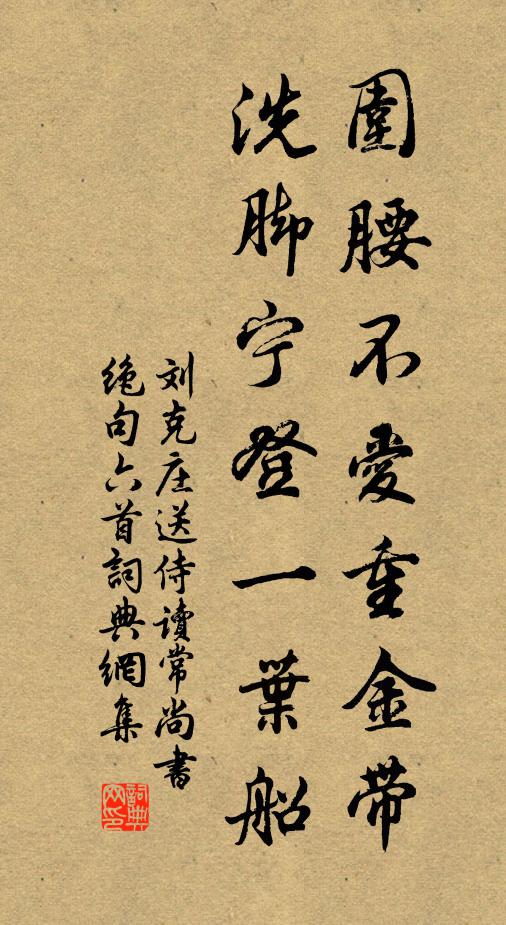 圍腰不愛重金帶
洗脚宁登一葉船
刘克庄送侍讀常尚書
绝句六首詞典網集
詞典
网印